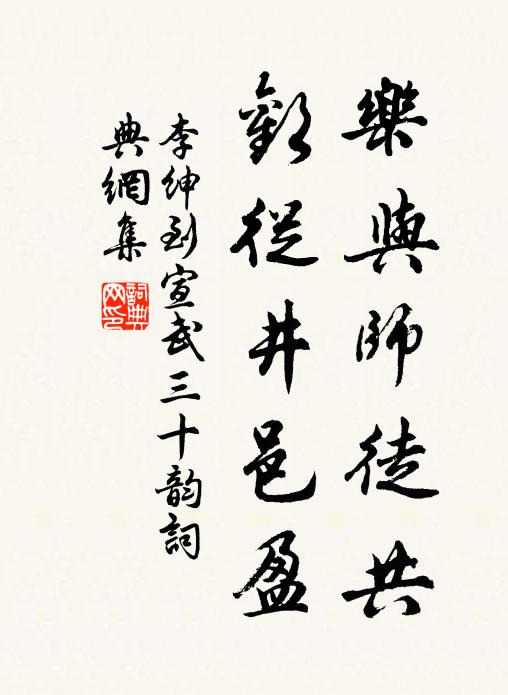 樂與師徒共
歡從井邑盈
李紳到宣武三十韵詞
典網集
詞典網印